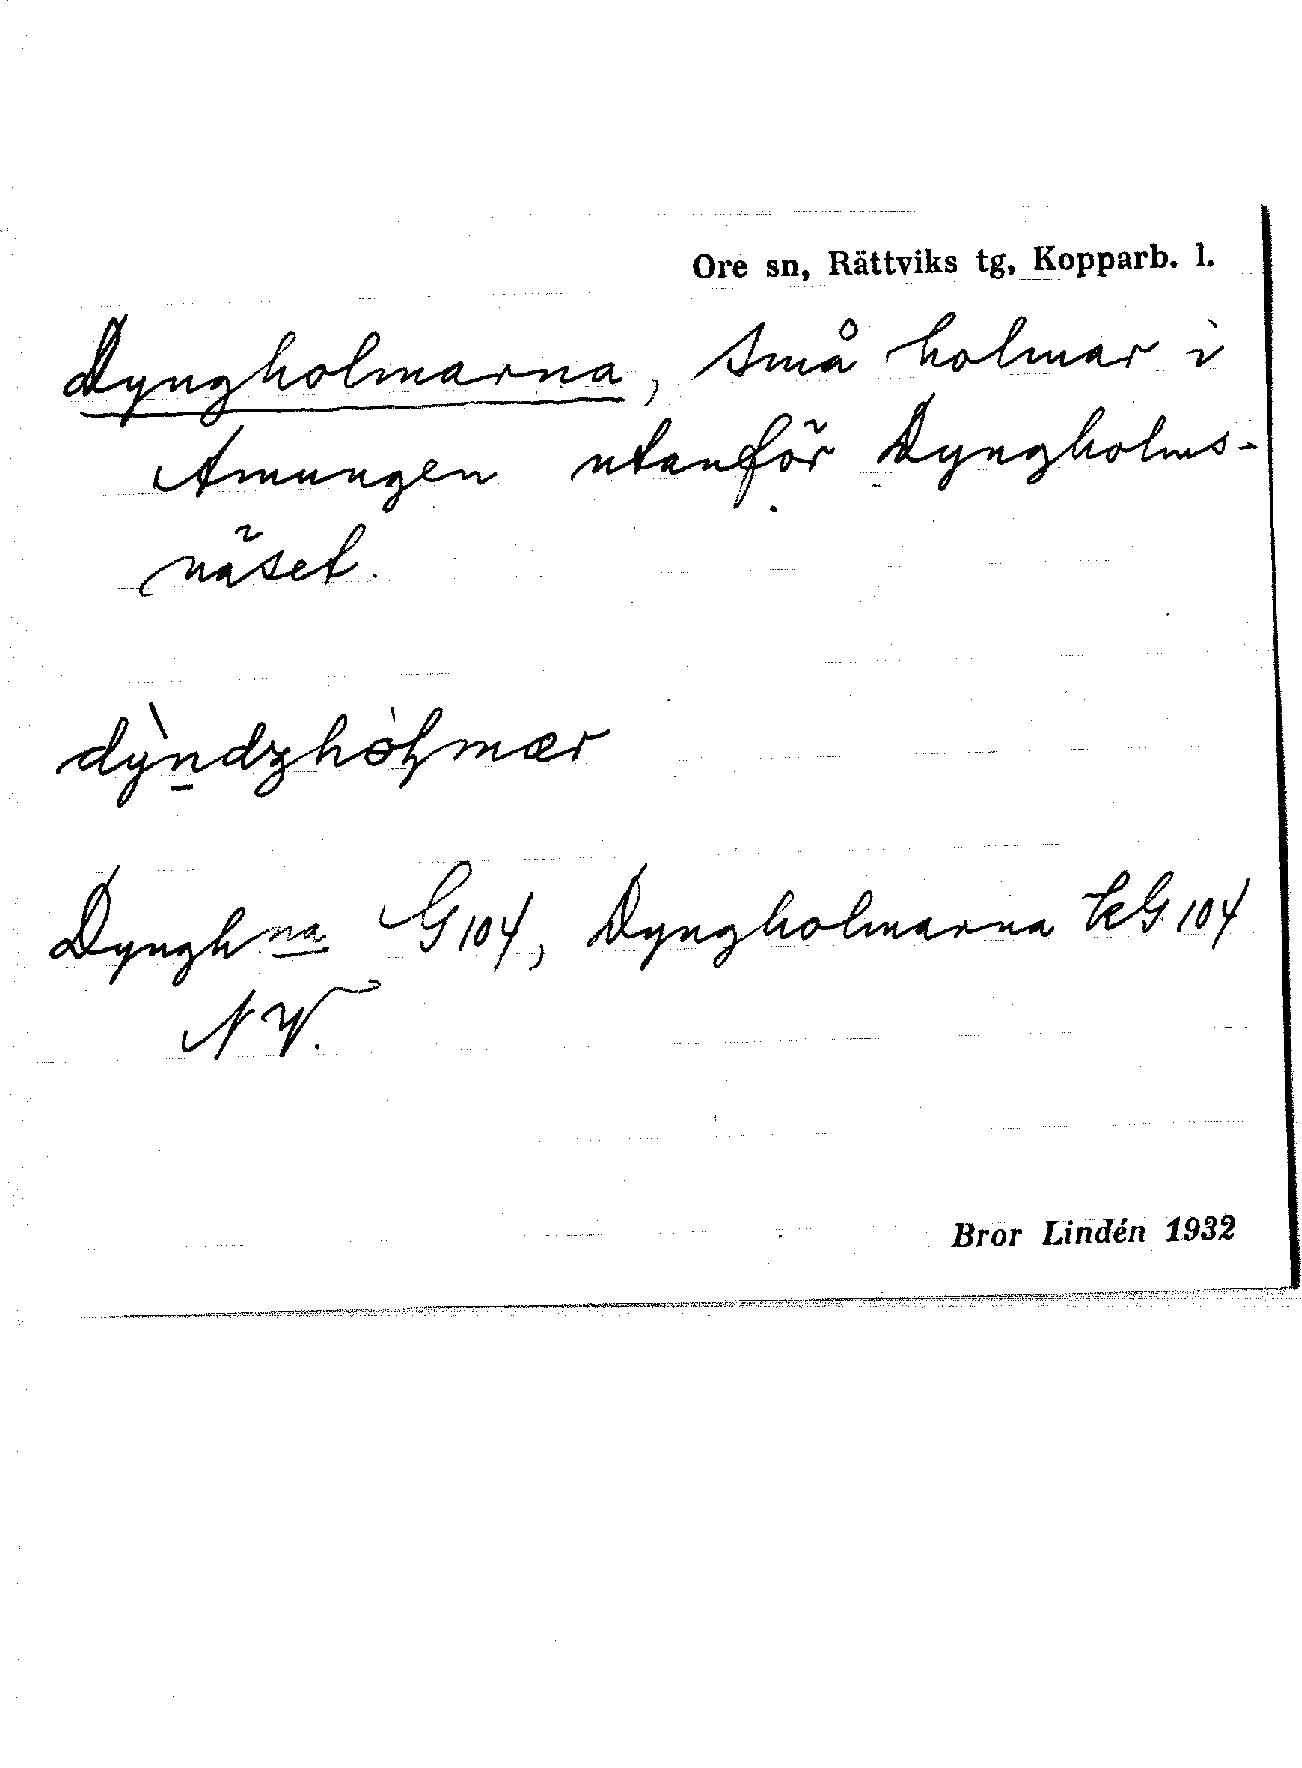 Ore sn, Rättviks tg, Kopparb. l.
Dyngholmarna, små holmar i
Amungen utanför Dyngholms-
näset.
dỳndzhòɫmær
Dynghna G104, Dyngholmarna kG 104
NV.
Bror Lindén 1932